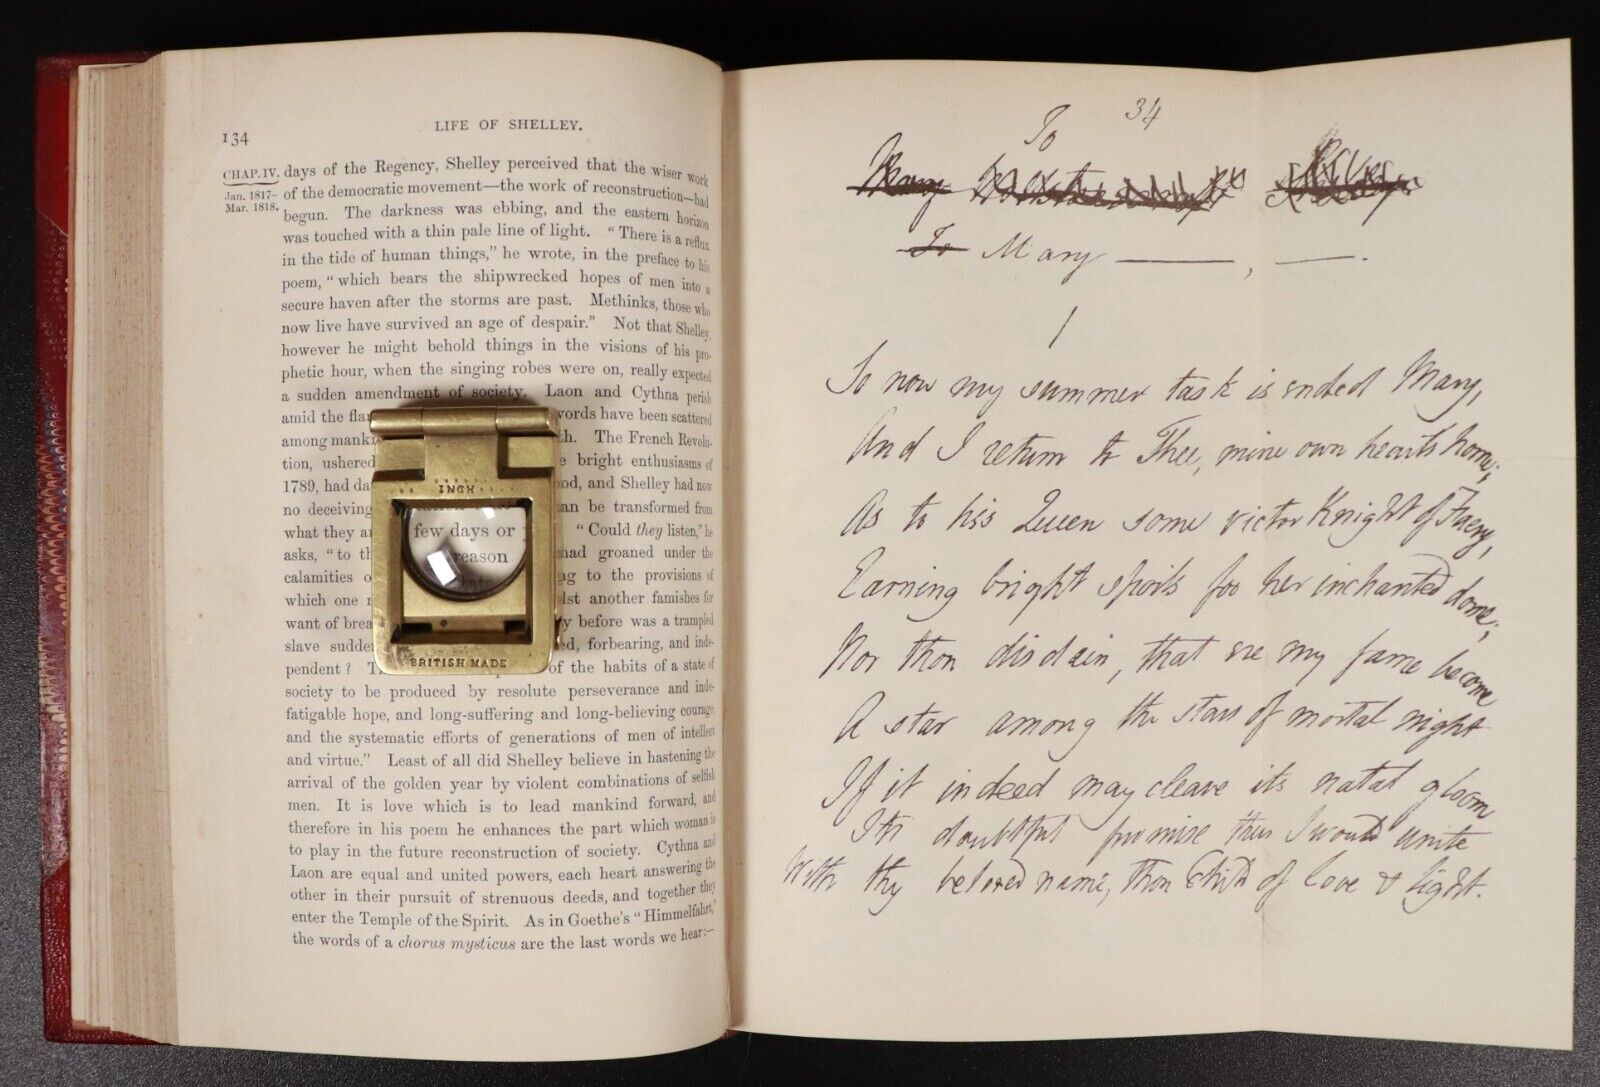 134
LIFE OF SHELLEY.
CHAP. IV.
Jan. 1817–
Mar. 1818.
days of the Regency, Shelley perceived that the wiser work
of the democratic movement—the work of reconstruction—had
begun. The darkness was ebbing, and the eastern horizon
was touched with a thin pale line of light. "There is a reflux
in the tide of human things," he wrote, in the preface to his
poem, "which bears the shipwrecked hopes of men into a
secure haven after the storms are past. Methinks, those who
now live have survived an age of despair." Not that Shelley,
however he might behold things in the visions of his pro-
phetic hour, when the singing robes were on, really expected
a sudden amendment of society. Laon and Cythna perish
amid the words have been scattered
among The French Revolu-
tion, ushered bright enthusiasms of
1789, had and Shelley had now
no deceiving be transformed from
what they "Could they listen," he
asks, "to had groaned under the
calamities to the provisions of
which one another famishes for
want of before was a trampled
slave forbearing, and inde-
pendent? of the habits of a state of
society to be produced by resolute perseverance and inde-
fatigable hope, and long-suffering and long-believing courage,
and the systematic efforts of generations of men of intellect
and virtue." Least of all did Shelley believe in hastening the
arrival of the golden year by violent combinations of selfish
men. It is love which is to lead mankind forward, and
therefore in his poem he enhances the part which woman is
to play in the future reconstruction of society. Cythna and
Laon are equal and united powers, each heart answering the
other in their pursuit of strenuous deeds, and together they
enter the Temple of the Spirit. As in Goethe's "Himmelfahrt,"
the words of a chorus mysticus are the last words we hear:—
INCH
few days or
reason
BRITISH MADE
34
To
Mary Wollstonecraft Shelley
To Mary ——, ——.
1
So now my summer task is ended Mary,
And I return to Thee, mine own hearts home;
As to his Queen some victor Knight of Faery,
Earning bright spoils for her inchanted dome;
Nor thou disdain, that ere my fame become
A star among the stars of mortal night
If it indeed may cleave its natal gloom
Its doubtful promise thus I would unite
With thy beloved name, thou Child of love & light.